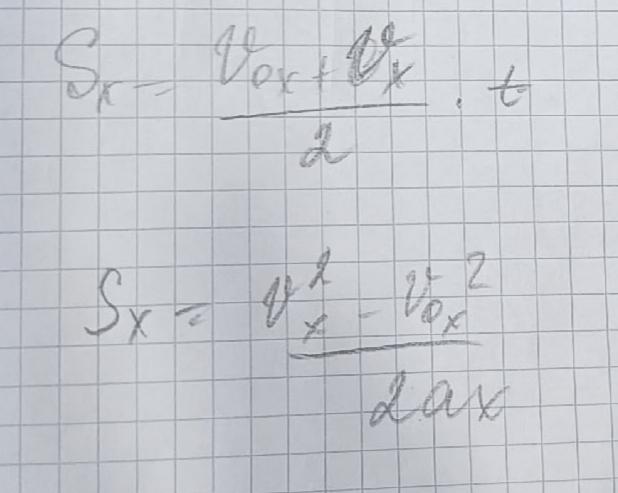 Sₓ = (v₀ₓ + vₓ)/2 · t
Sₓ = (vₓ² - v₀ₓ²)/2aₓ